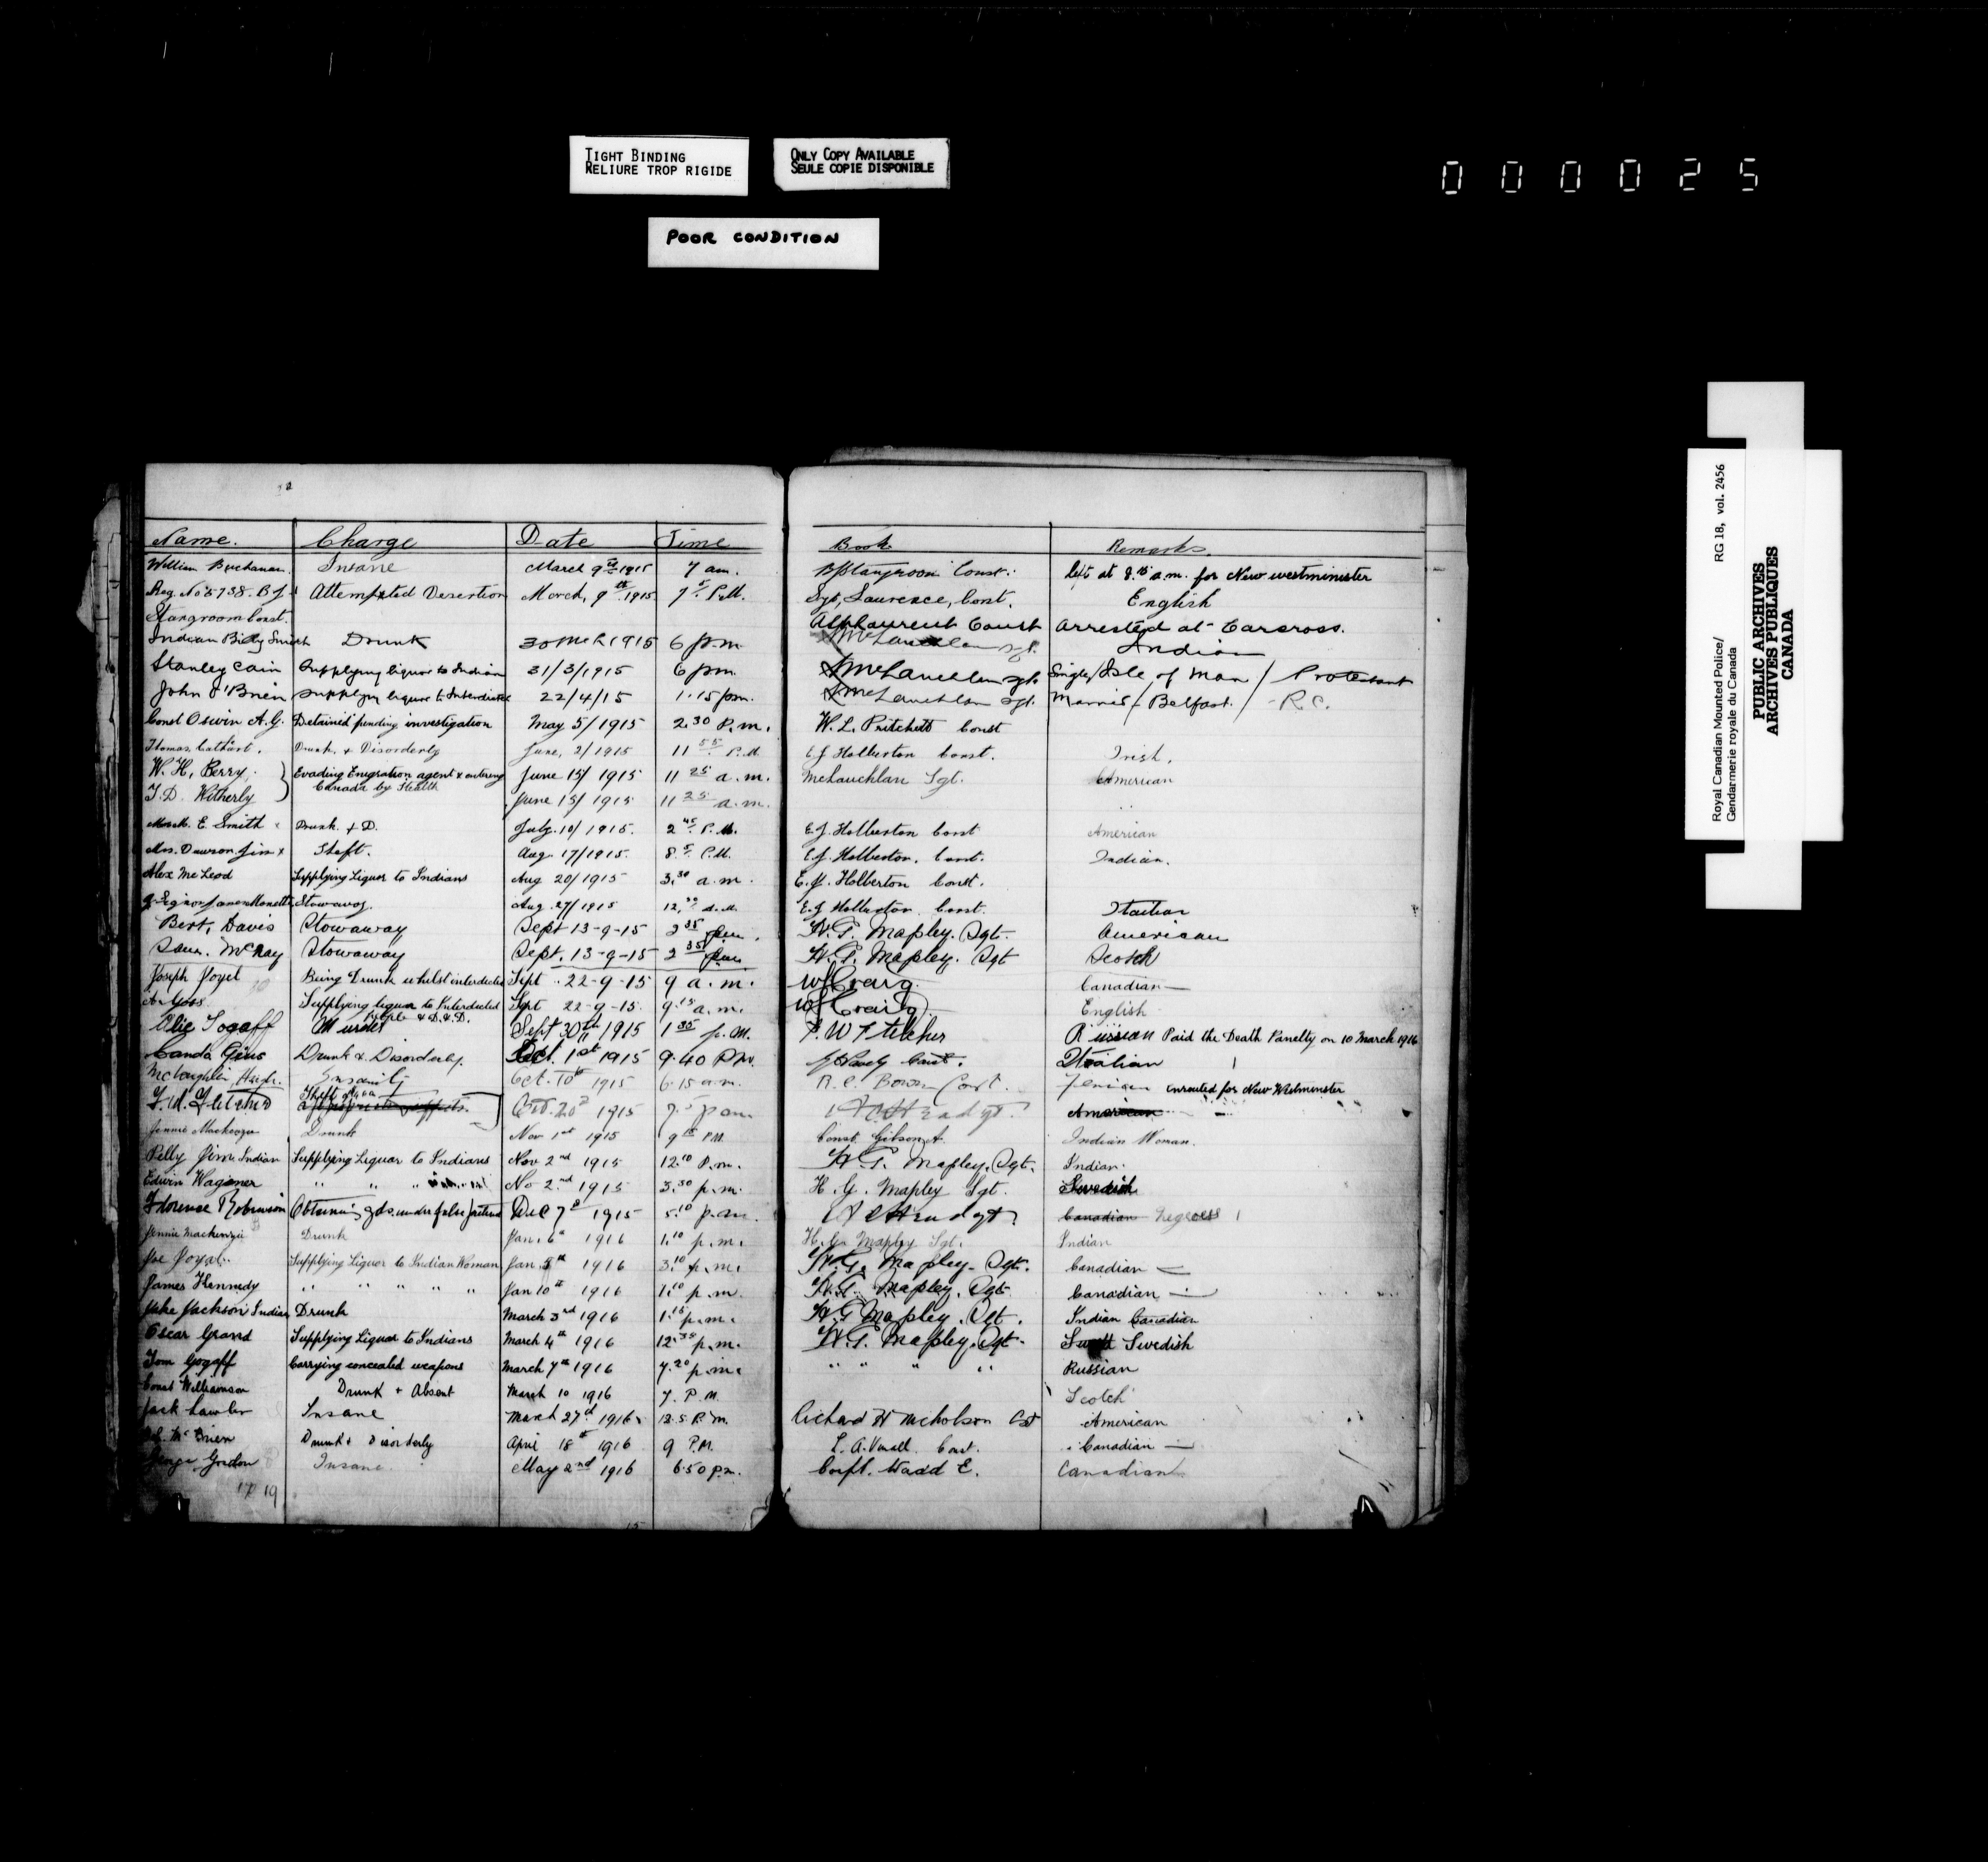 TIGHT BINDING
RELIURE TROP RIGIDE
ONLY COPY AVAILABLE
SEULE COPIE DISPONIBLE
POOR CONDITION
000025
Royal Canadian Mounted Police/ RG 18, vol. 2456
Gendarmerie royale du Canada
PUBLIC ARCHIVES
ARCHIVES PUBLIQUES
CANADA
Name. Charge Date Time Book Remarks.
William Buchanan. Insane March 9th 1915 7 am. Const. left at 8.15 a.m. for New westminister
Reg. No 5738. B.J. Attempted Desertion March, 9th 1915. 7 P.M. Sgt, Laurence, Const. English
Stangroom Const.
Indian Billy Smith Drunk 30 1915 6 p.m. McLauchlan Sgt. Arrested at Carcross. Indian
Stanley Cain Supplying liquor to Indian 31/3/1915 6 pm. McLauchlan Sgt. Single/Isle of Man / Protestant
John O'Brien Supplying liquor to Interdicted 22/4/15 1.15 pm. McLauchlan Sgt. Married / Belfast. / R.C.
Const Oswin A.G. Detained pending investigation May 5/1915 2.30 P.m. W. L. Pritchett Const
Thomas Cathart. Drunk. & Disorderly June, 2/1915 11 55 P.M. E J Holberton Const. Irish.
W. H. Berry. } Evading Emigration agent & entering June 15/ 1915 11 25 a.m. McLauchlan Sgt. American
T. D. Witherly Canada by Stealth June 15/ 1915 11 25 a.m. ..
E. Smith Drunk. & D. July. 10/ 1915. 2 45 P.M. E.J. Holberton Const American
Mrs. Dawson Jim x Theft. Aug. 17/1915. 8.5 P.M. E.J. Holberton. Const. Indian.
Alex McLeod Supplying Liquor to Indians Aug 20/1915 3.30 a.m. E.J. Holberton Const.
Stowaway. Aug. 27/1915 12. E.J Holberton Const. Italian
Bert, Davis Stowaway Sept 13-9-15 2 35 pm. H.G. Mapley. Sgt. American
Sam. McKay Stowaway Sept. 13-9-15 2 35 pm H.G. Mapley. Sgt Scotch
Joseph Joyal Being Drunk whilst interdicted Sept. 22-9-15 9 a.m. Craig Canadian —
Supplying liquor to Interdicted Sept 22-9-15. 9.15 a.m. Craig English
People & D.&D.
Alic Gogoff Murder Sept 30th 1915 1 35 p.M. P. W Fletcher Russian Paid the Death Panelty on 10 March 1916
Canda Gius Drunk & Disorderly. Oct. 1st 1915 9.40 P.M. Const. Italian
McLaughlin Hugh. Insanity Oct. 10th 1915 6.15 a.m. R.C. Const. enrouted for New Westminster
Theft 1915 American
Jennie Mackenzie Drunk Nov 1st 1915 9 15 P.M. Const. Gibson A. Indian Woman.
Pelly Jim Indian Supplying Liquor to Indians Nov 2nd 1915 12.10 P.m. H.G. Mapley. Sgt. Indian.
Edwin Wagoner " " " No 2.nd 1915 3.30 p.m. H.G. Mapley Sgt. Swedish
Florence Robinson Obtaining gds under false pretence Dec 7th 1915 5.10 p.m. Canadian Negress
Jennie Mackenzie Drunk Jan. 6th 1916 1.10 p.m. H.G. Mapley Sgt. Indian
Joe Joyal. Supplying Liquor to Indian Woman Jan 8th 1916 3.10 p.m. H.G. Mapley. Sgt. Canadian —
James Kennedy " " " " " Jan 10th 1916 1.10 p.m. H.G. Mapley. Sgt. Canadian —
Jake Jackson Indian Drunk March 3rd 1916 1.15 p.m. H.G Mapley. Sgt. Indian Canadian
Oscar Grand Supplying Liquor to Indians March 4th 1916 12.30 p.m. H.G. Mapley. Sgt. Swedish
Tom Gogoff Carrying concealed weapons March 7th 1916 7.20 p.m. " " " " Russian
Const Williamson Drunk & Absent March 10 1916 7. P.M. Scotch
Jack Lawler Insane March 27th 1916. 12.5 P.M. Richard H Nicholson Cst American
McBrien Drunk & Disorderly April 18th 1916 9 P.M. L. A. Const. Canadian —
George Gordon Insane. May 2nd 1916 6.50 p.m. Corpl. Wadd E. Canadian
19